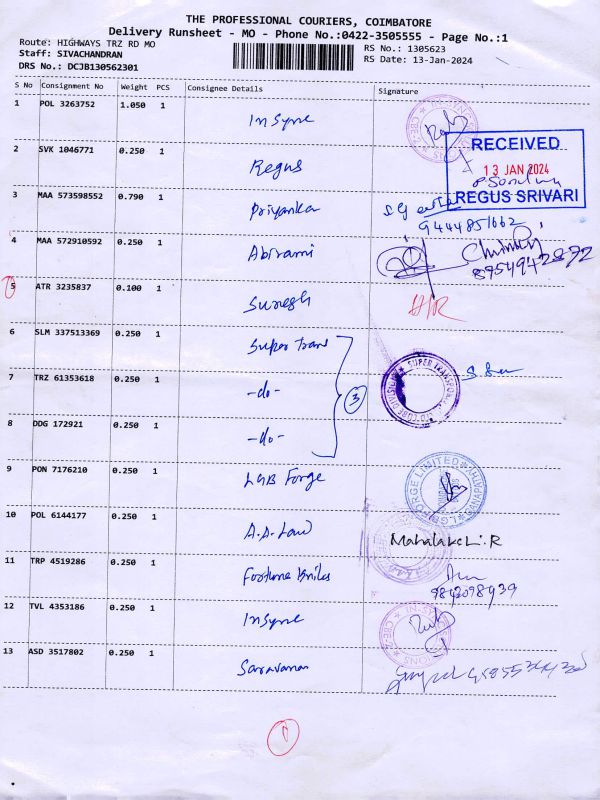 THE PROFESSIONAL COURIERS, COIMBATORE
Delivery Runsheet - MO - Phone No.:0422-3505555 - Page No.:1
Route: HIGHWAYS TRZ RD MO
RS No.: 1305623
Staff: SIVACHANDRAN
RS Date: 13-Jan-2024
DRS No.: DCJB130562301
S No Consignment No Weight PCS Consignee Details Signature
1 POL 3263752 1.050 1
Insyne
RECEIVED
13 JAN 2024
REGUS SRIVARI
2 SVK 1046771 0.250 1
Regus
3 MAA 573598552 0.790 1
Priyanka
9444851662
4 MAA 572910592 0.250 1
Abirami
8754942872
5 ATR 3235837 0.100 1
Suresh
6 SLM 337513369 0.250 1
Super Trans
7 TRZ 61353618 0.250 1
-do-
3
8 DDG 172921 0.250 1
-do-
9 PON 7176210 0.250 1
LGB Forge
10 POL 6144177 0.250 1
A.A. Law
11 TRP 4519286 0.250 1
Fortune
12 TVL 4353186 0.250 1
Insyne
13 ASD 3517802 0.250 1
Saravanan
1